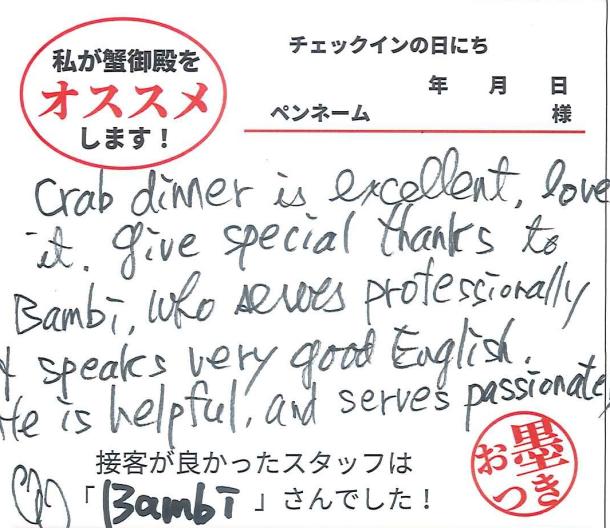 私が蟹御殿を
オススメ
します！
チェックインの日にち
年 月 日
ペンネーム 様
Crab dinner is excellent, love
it. Give special thanks to
Bambi, who serves professionally
& speaks very good English.
He is helpful, and serves passionately
接客が良かったスタッフは
「Bambi」さんでした！
お墨つき